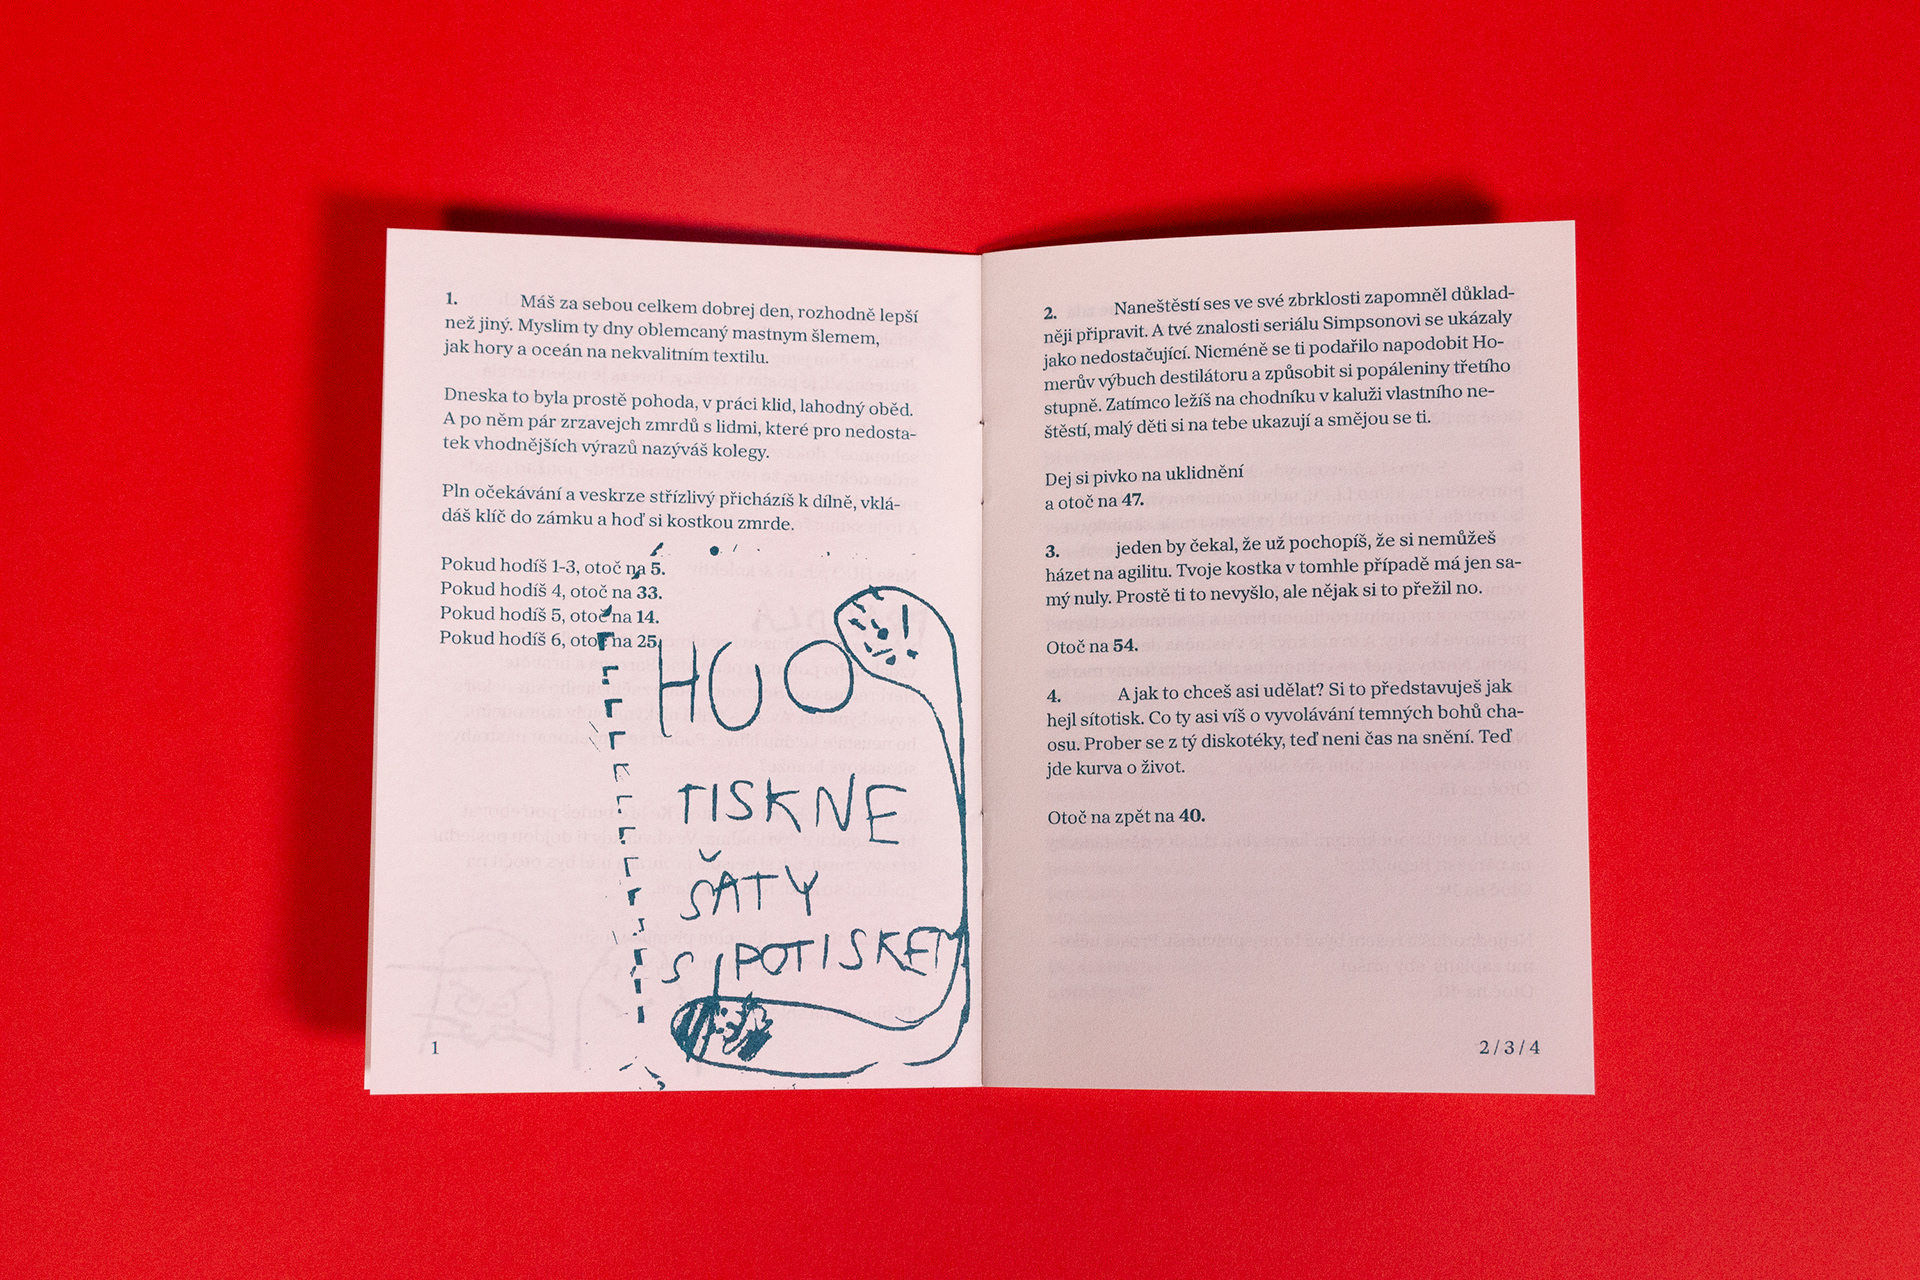 1. Máš za sebou celkem dobrej den, rozhodně lepší
než jiný. Myslim ty dny oblemcaný mastnym šlemem,
jak hory a oceán na nekvalitním textilu.
Dneska to byla prostě pohoda, v práci klid, lahodný oběd.
A po něm pár zrzavejch zmrdů s lidmi, které pro nedosta-
tek vhodnějších výrazů nazýváš kolegy.
Pln očekávání a veskrze střízlivý přicházíš k dílně, vklá-
dáš klíč do zámku a hoď si kostkou zmrde.
Pokud hodíš 1-3, otoč na 5.
Pokud hodíš 4, otoč na 33.
Pokud hodíš 5, otoč na 14.
Pokud hodíš 6, otoč na 25.
HUO
TISKNE
ŠATY
S POTISKEM
1
2. Naneštěstí ses ve své zbrklosti zapomněl důklad-
něji připravit. A tvé znalosti seriálu Simpsonovi se ukázaly
jako nedostačující. Nicméně se ti podařilo napodobit Ho-
merův výbuch destilátoru a způsobit si popáleniny třetího
stupně. Zatímco ležíš na chodníku v kaluži vlastního ne-
štěstí, malý děti si na tebe ukazují a smějou se ti.
Dej si pivko na uklidnění
a otoč na 47.
3. jeden by čekal, že už pochopíš, že si nemůžeš
házet na agilitu. Tvoje kostka v tomhle případě má jen sa-
mý nuly. Prostě ti to nevyšlo, ale nějak si to přežil no.
Otoč na 54.
4. A jak to chceš asi udělat? Si to představuješ jak
hejl sítotisk. Co ty asi víš o vyvolávání temných bohů cha-
osu. Prober se z tý diskotéky, teď neni čas na snění. Teď
jde kurva o život.
Otoč na zpět na 40.
2 / 3 / 4